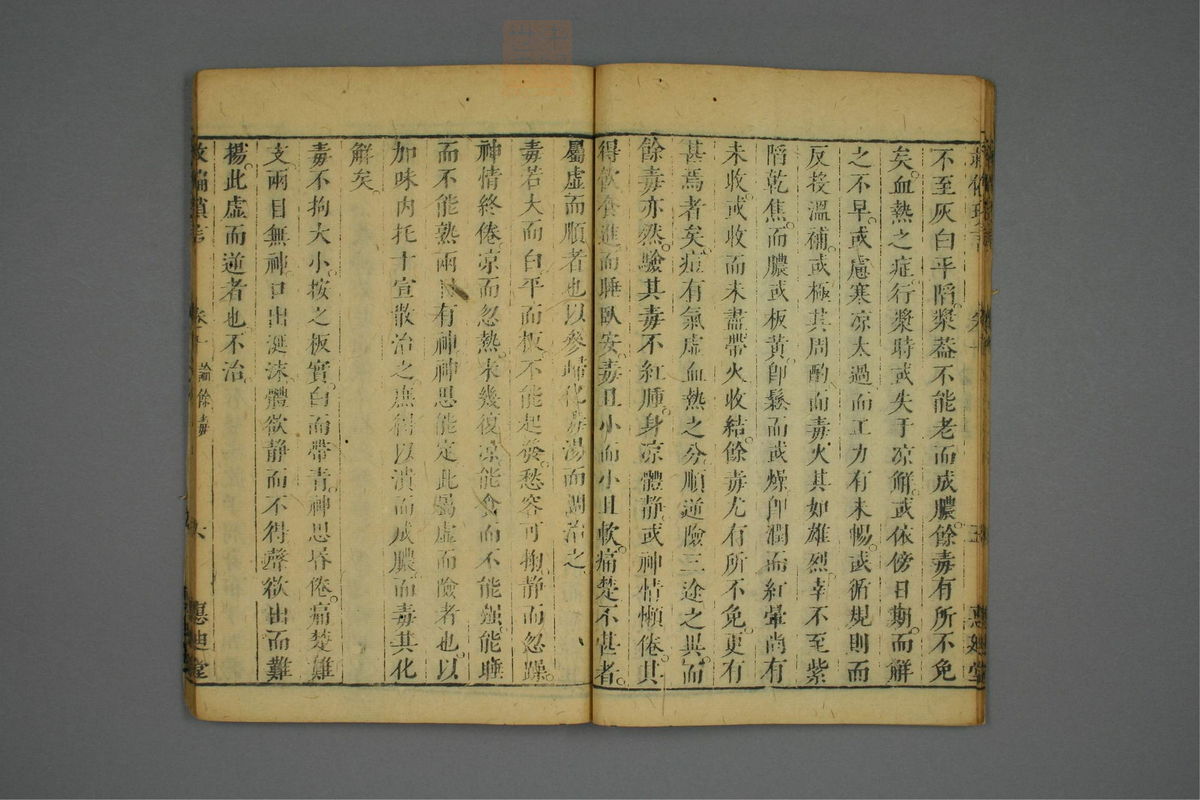 不至灰白平陷漿蓋不能老而成膿餘毒有所不免
矣血熱之症行漿時或失于凉解或依傍日期而解
之不早或慮寒凉太過而工力有未暢或循規則而
反投溫補或極其周酌而毒火其如雄烈幸不至紫
陷乾焦而膿或板黃卽鬆而或燥卽潤而紅暈尚有
未收或收而未盡帶火收結餘毒尤有所不免更有
甚焉者矣痘有氣虛血熱之分順逆險三途之異而
餘毒亦然驗其毒不紅腫身凉體静或神情懶倦其
得飲食進而睡臥安毒且小而小且軟痛楚不甚者
屬虛而順者也以參歸化毒湯而調治之
毒若大而白平而板不能起發愁容可掬静而忽躁
神情終倦凉而忽熱未幾復凉能食而不能强能睡
而不能熟兩目有神神思能定此屬虛而險者也以
加味內托十宣散治之庶得以潰而成膿而毒其化
解矣
毒不拘大小按之板實白而帶青神思昏倦痛楚難
支兩目無神口出涎沫體欲静而不得聲欲出而難
揚此虛而逆者也不治
卷一 論餘毒 六 惠迪堂